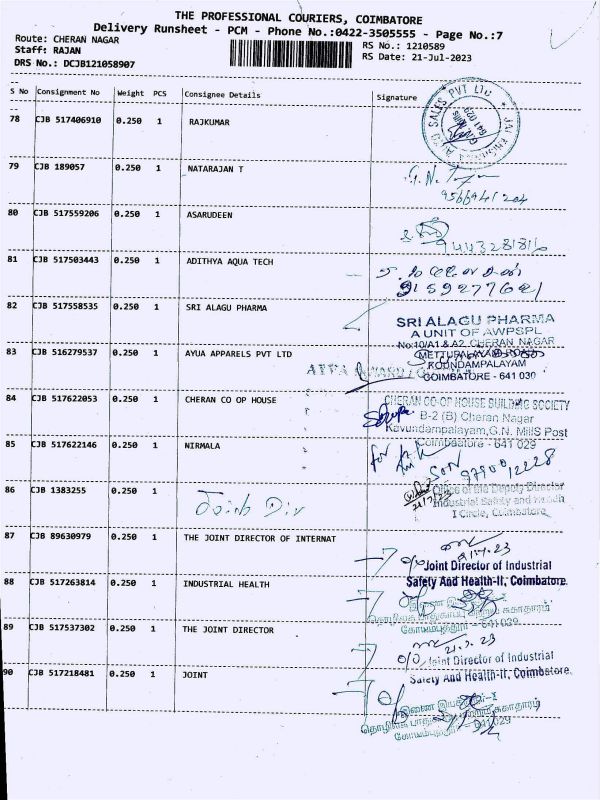 THE PROFESSIONAL COURIERS, COIMBATORE
Delivery Runsheet - PCM - Phone No.:0422-3505555 - Page No.:7
Route: CHERAN NAGAR
RS No.: 1210589
Staff: RAJAN
RS Date: 21-Jul-2023
DRS No.: DCJB121058907
S No Consignment No Weight PCS Consignee Details Signature
SALES PVT LTD
641 029
78 CJB 517406910 0.250 1 RAJKUMAR
79 CJB 189057 0.250 1 NATARAJAN T
G.N.
80 CJB 517559206 0.250 1 ASARUDEEN
9443281816
81 CJB 517503443 0.250 1 ADITHYA AQUA TECH
9159277621
82 CJB 517558535 0.250 1 SRI ALAGU PHARMA
SRI ALAGU PHARMA
A UNIT OF AWPSPL
No:10/A1 & A2, CHERAN NAGAR
83 CJB 516279537 0.250 1 AYUA APPARELS PVT LTD
METTUPALAYAM ROAD
KOUNDAMPALAYAM
COIMBATORE - 641 030
84 CJB 517622053 0.250 1 CHERAN CO OP HOUSE
CHERAN CO-OP HOUSE BUILDING SOCIETY
B-2 (B) Cheran Nagar
Kavundampalayam, G.N. Mills Post
Coimbatore - 641 029
85 CJB 517622146 0.250 1 NIRMALA
for
SON
9790012228
86 CJB 1383255 0.250 1 Joint Dir
Office of the Deputy Director
Industrial Safety and Health
I Circle, Coimbatore
87 CJB 89630979 0.250 1 THE JOINT DIRECTOR OF INTERNAT
21.7.23
Joint Director of Industrial
Safety And Health-II, Coimbatore.
88 CJB 517263814 0.250 1 INDUSTRIAL HEALTH
இணை இயக்குநர்-I
தொழிலக பாதுகாப்பு மற்றும் சுகாதாரம்
கோயம்புத்தூர் - 641 029
89 CJB 517537302 0.250 1 THE JOINT DIRECTOR
21.7.23
o/o Joint Director of Industrial
Safety And Health-II, Coimbatore.
90 CJB 517218481 0.250 1 JOINT
இணை இயக்குநர்-I
தொழிலக பாதுகாப்பு மற்றும் சுகாதாரம்
கோயம்புத்தூர் - 641 029